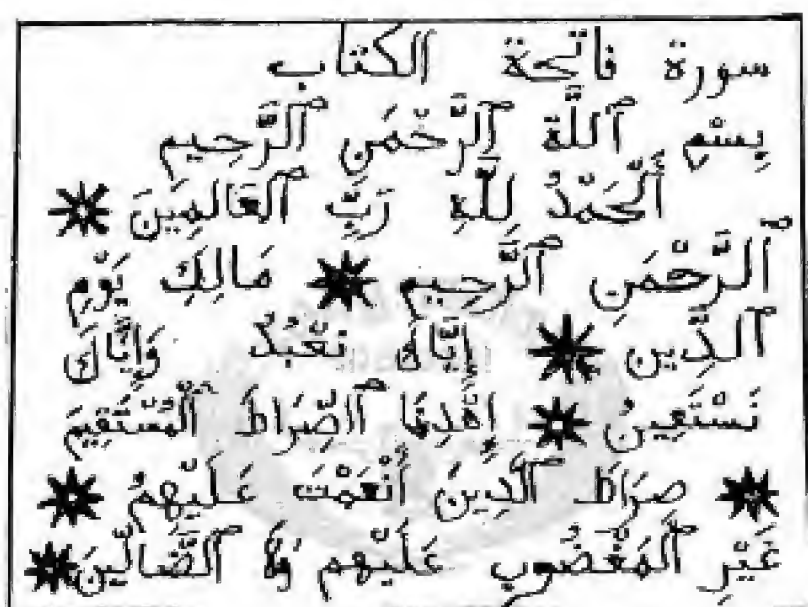 سورة فاتحة الكتاب
بِسْمِ ٱللَّهِ ٱلرَّحْمَنِ ٱلرَّحِيمِ
ٱلْحَمْدُ لِلَّهِ رَبِّ ٱلْعَالَمِينَ
ٱلرَّحْمَنِ ٱلرَّحِيمِ مَالِكِ يَوْمِ
ٱلدِّينِ إِيَّاكَ نَعْبُدُ وَإِيَّاكَ
نَسْتَعِينُ إِهْدِنَا ٱلصِّرَاطَ ٱلْمُسْتَقِيمَ
صِرَاطَ ٱلَّذِينَ أَنْعَمْتَ عَلَيْهِمْ
غَيْرِ ٱلْمَغْضُوبِ عَلَيْهِمْ وَلَا ٱلضَّالِّينَ